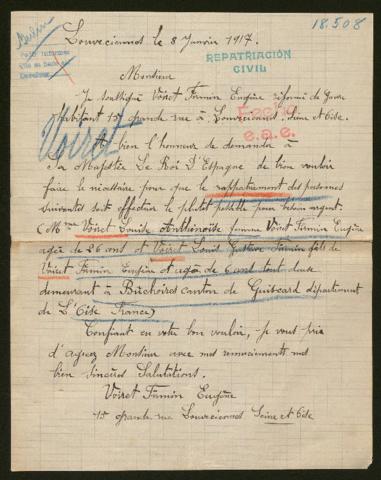 18.508
Louveciennes le 8 Janvier 1917.
REPATRIACIÓN
CIVIL
Monsieur
Je soussigné Voiret Firmin Eugène réformé de guerre
habitant 15 grande rue à Louveciennes. Seine et Oise.
Fecho
e.a.e.
Voiret
bien l'honneur de demander à
Sa Majestée Le Roi D'Espagne de bien vouloir
faire le nécessaire pour que le rapatriement des personnes
suivantes soit effectuer le plutôt possible pour besoin urgent.
(Mme Voiret Louise Anthénoise femme Voiret Firmin Eugène
agée de 26 ans et Voiret Louis Gustave Firmin fils de
Voiret Firmin Eugène et agée de 6 ans tout deux
demeurant à canton de Guiscard département
de L'Oise France)
Confiant en votre bon vouloir, je vous prie
d'agréez Monsieur avec mes remerciements mes
bien sincères Salutations.
Voiret Firmin Eugène
15 grande rue Louveciennes Seine et Oise